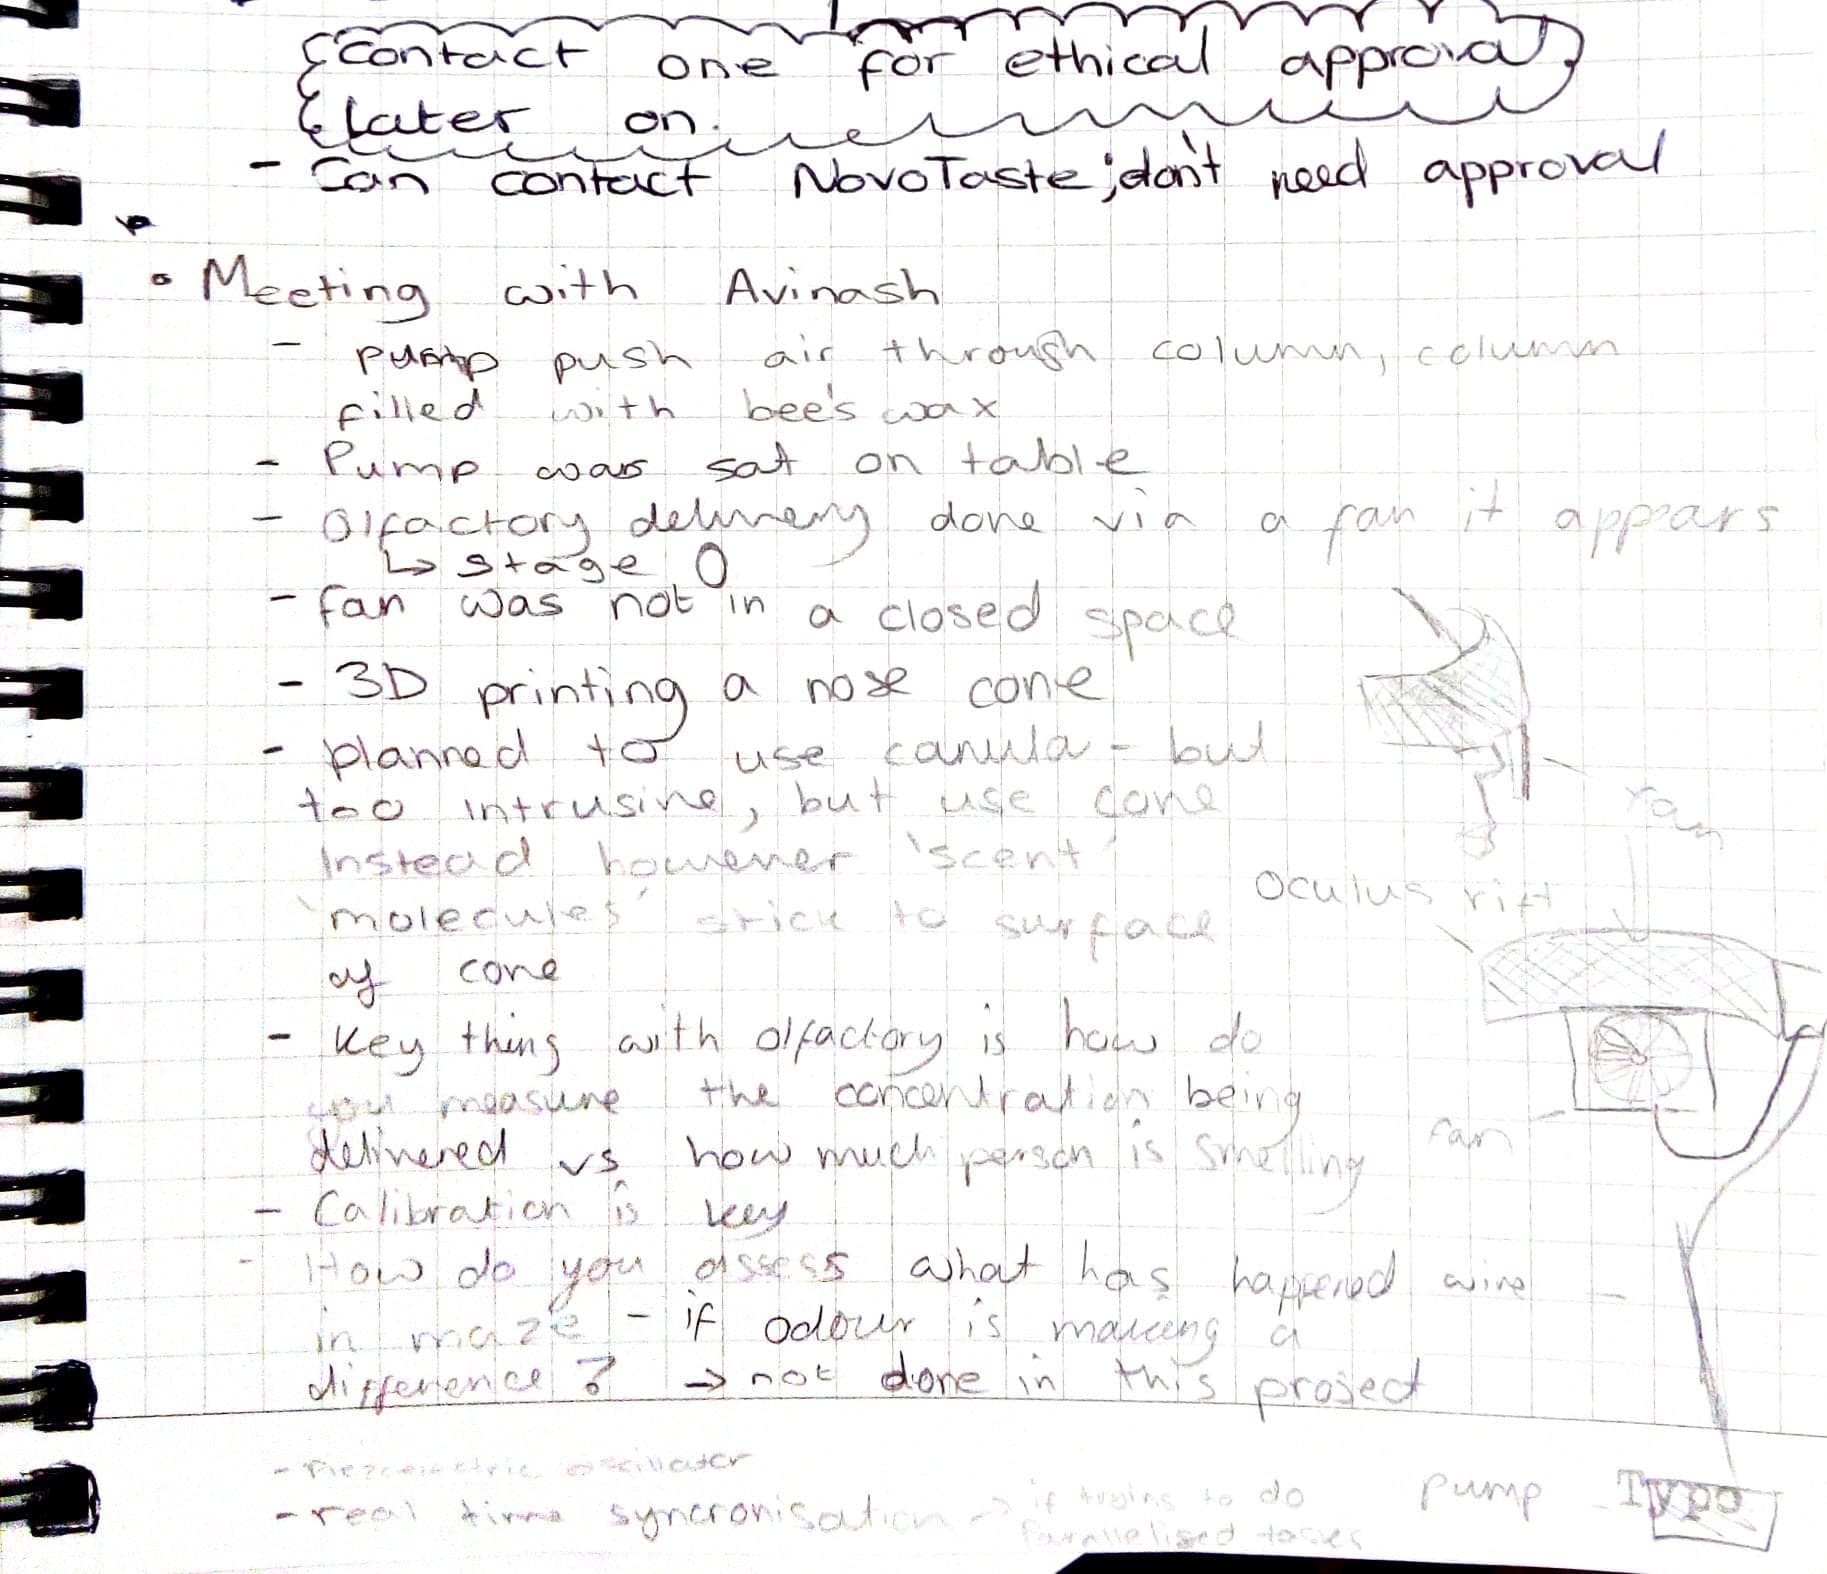 Contact one for ethical approval
later on.
- Can contact NovoTaste; don't need approval
• Meeting with Avinash
- pump push air through column, column
filled with bee's wax
- Pump was sat on table
- Olfactory delivery done via a fan it appears
↳ stage 0
- fan was not in a closed space
- 3D printing a nose cone
- planned to use canula - but
too intrusive, but use cone
Instead however 'scent'
'molecules' stick to surface
of cone
fan
Oculus rift
- Key thing with olfactory is how do
you measure the concentration being
delivered vs how much person is smelling
fan
- Calibration is key
- How do you assess what has happened
wire
in maze - if odour is making a
difference? → not done in this project
- Piezoelectric oscillator
- real time syncronisation → if trying to do
parallelised tasks
pump
Typo